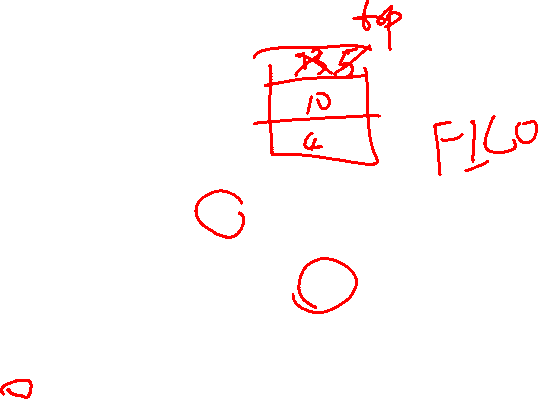 top
5
10
4
FILO